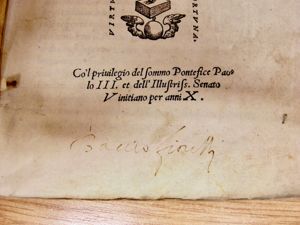 VIRTV
ORTVNA.
Co'l priuilegio del sommo Pontefice Pao-
lo III. et dell'Illustriss. Senato
Vinitiano per anni X.